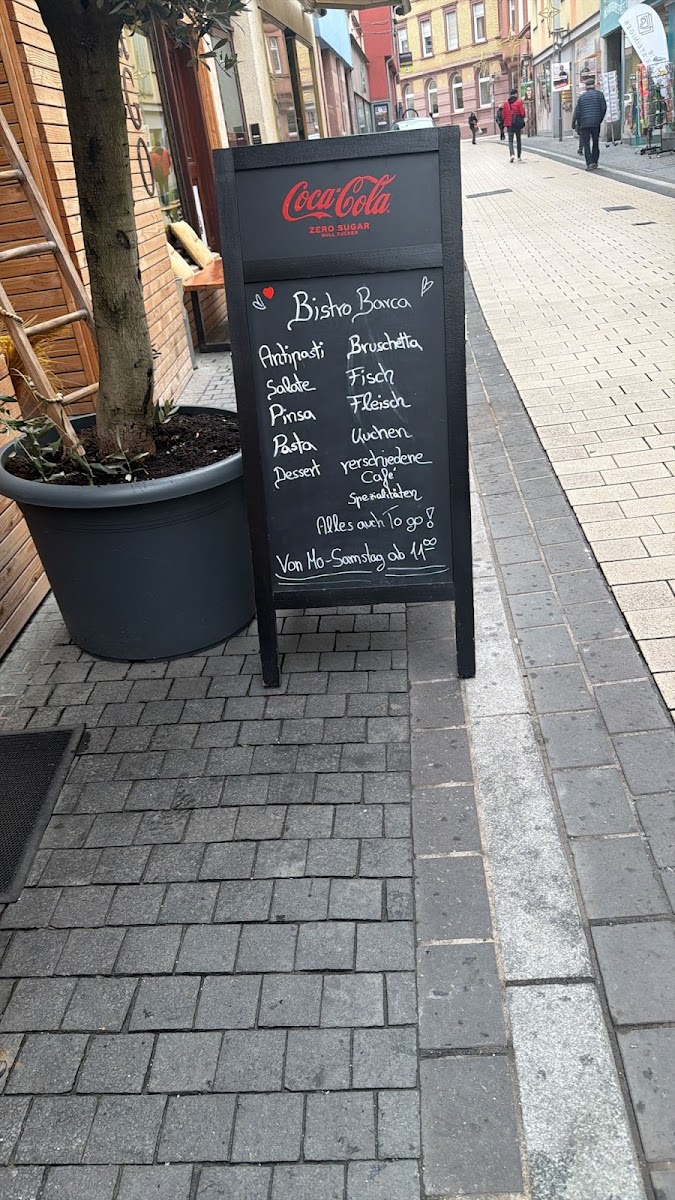 Coca-Cola
ZERO SUGAR
NULL ZUCKER
Bistro Barca
Antipasti
Salate
Pinsa
Pasta
Dessert
Bruschetta
Fisch
Fleisch
Kuchen
verschiedene
Café
Spezialitäten
Alles auch To go!
Von Mo-Samstag ab 11⁰⁰